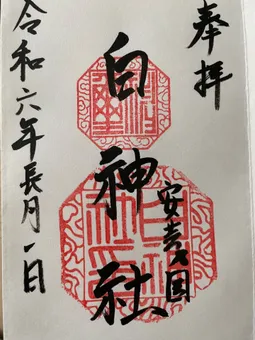 奉拝
安芸国
白神社
令和六年長月一日
白神
社印